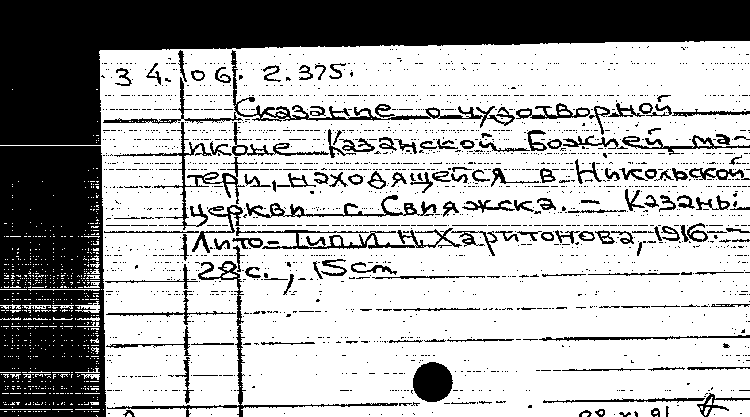 34.06.2.375.
Сказание о чудотворной
иконе Казанской Божией ма-
тери, находящейся в Никольской
церкви г. Свияжска. – Казань:
Лито-Тип. И. Н. Харитонова, 1916. –
28 с. ; 15 cm